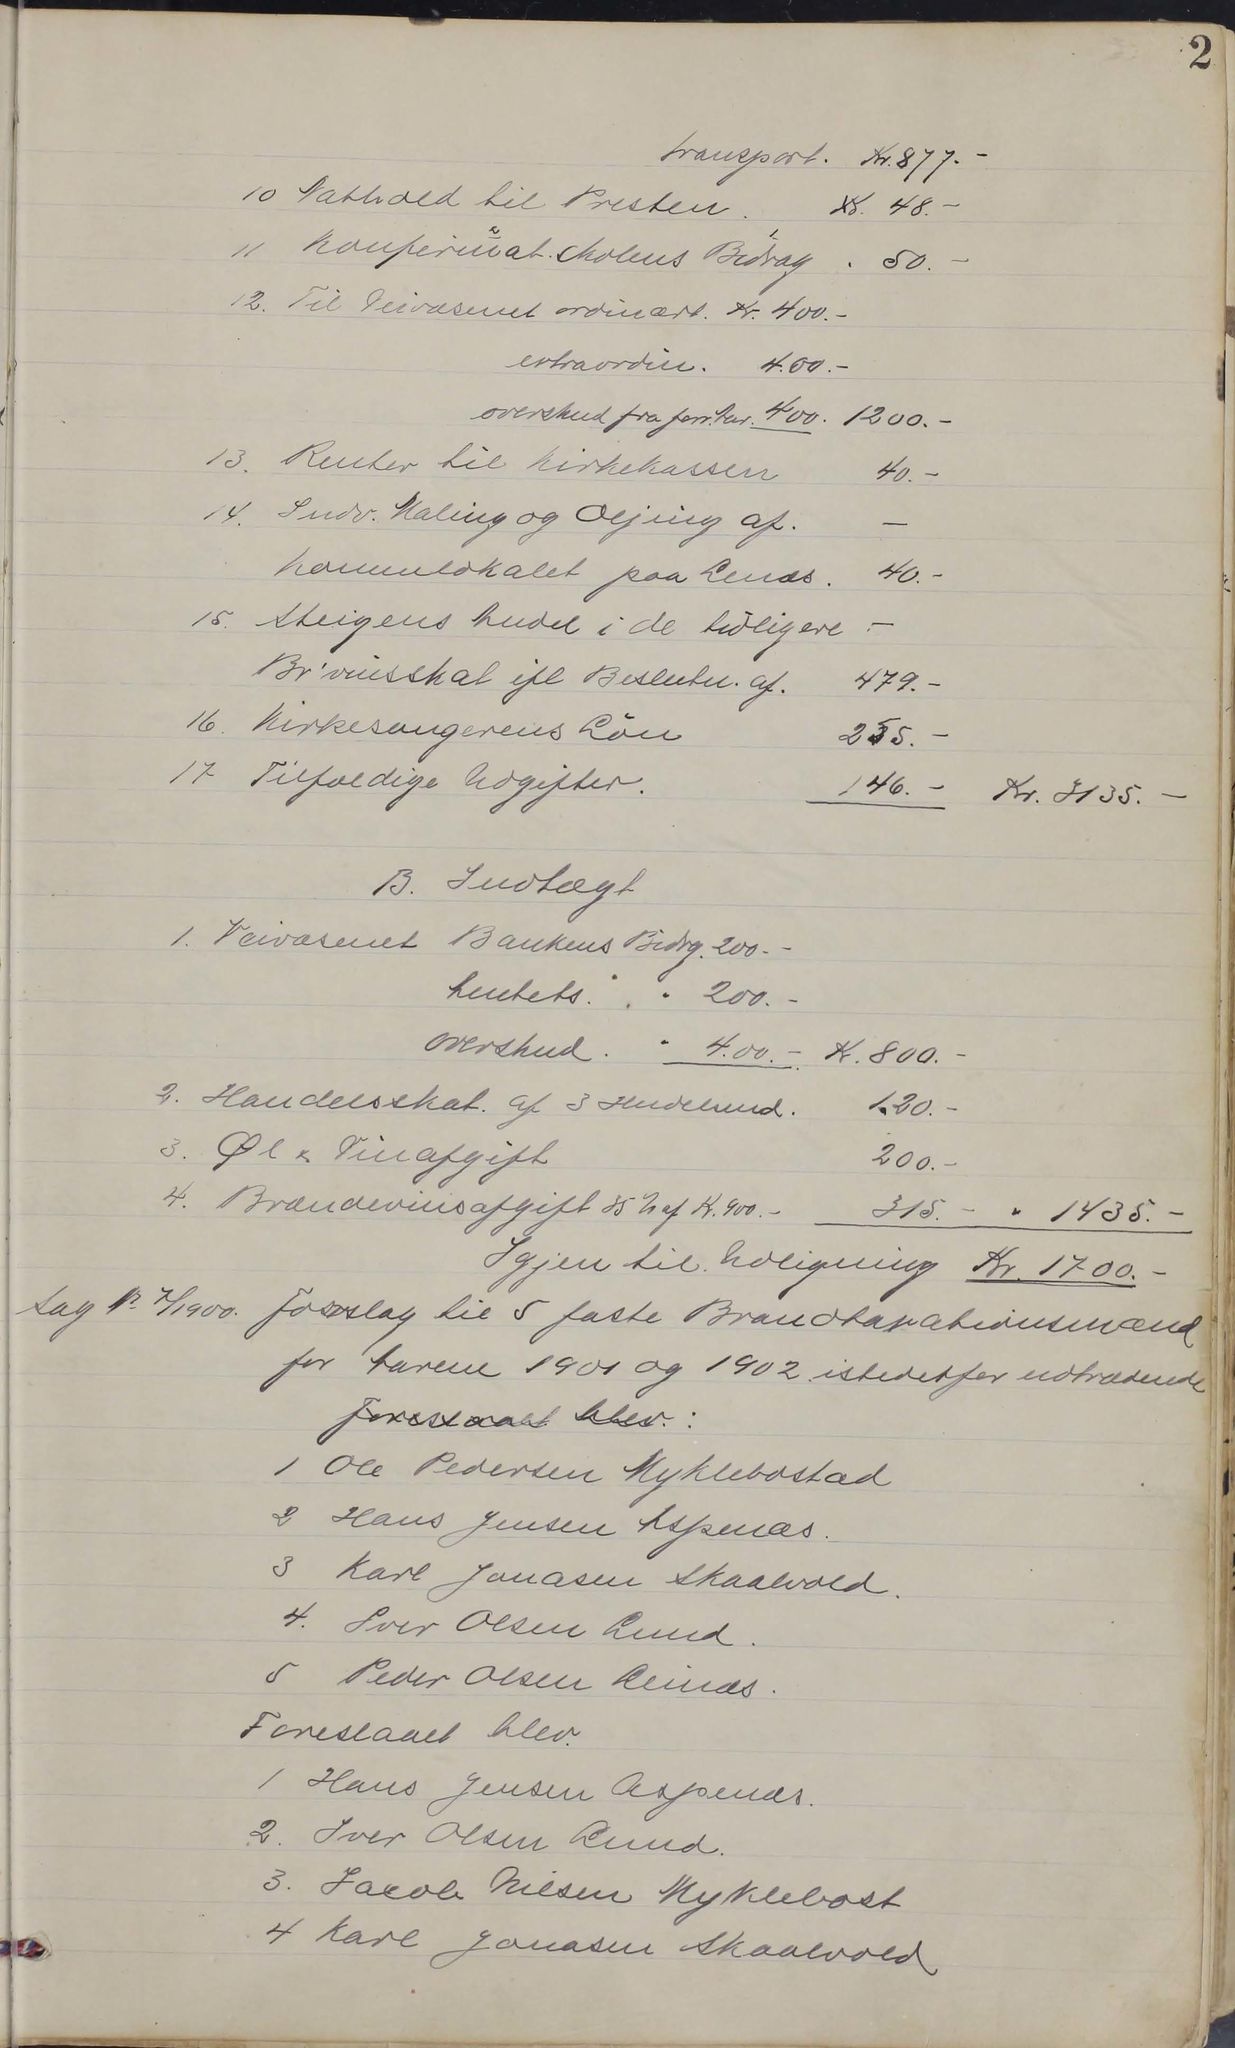 2
transport. Kr. 877.-
10 Nathold til Presten. Kr. 48.-
11 Konfirmat. skolens Bidrag . 50.-
12. Til Veivæsenet ordinært. Kr. 400.-
extraordin. 400.-
overskud fra forr. Aar. 400. 1200.-
13. Renter til Kirkekassen 40.-
14. Indv. Maling og Oljing af. -
Kommulokalet paa Lenæs. 40.-
15. Steigens Andel i de tidligere -
Br'vinsskat ifl Beslutn. af. 479.-
16. Kirkesangerens Lön 255.-
17 Tilfældige Udgifter. 146.- Kr. 3135.-
B. Indtægt
1. Veivæsenet Bankens Bidrg. 200.-
Amtets. " 200.-
overskud. " 400.- Kr. 800.-
2. Handelsskat. af 3 Handelsmd. 120.-
3. Øl & Vinafgift 200.-
4. Brændevinsafgift 35 % af Kr. 900.- 315.- " 1435.-
Igjen til Udligning Kr. 1700.-
Sag No 7/1900. Forslag til 5 faste Brandtaxationsmænd
for Aarene 1901 og 1902 istedetfor udtrædende
Foreslaaet blev:
1 Ole Pedersen Myklebostad
2 Hans Jensen Aspenæs.
3 Karl Jonasen Skaalvold.
4. Iver Olsen Lund.
5 Peder Olsen Leinæs.
Foreslaaet blev.
1 Hans Jensen Aspenæs.
2. Iver Olsen Lund.
3. Jacob Nilsen Myklebost
4 Karl Jonasen Skaalvold